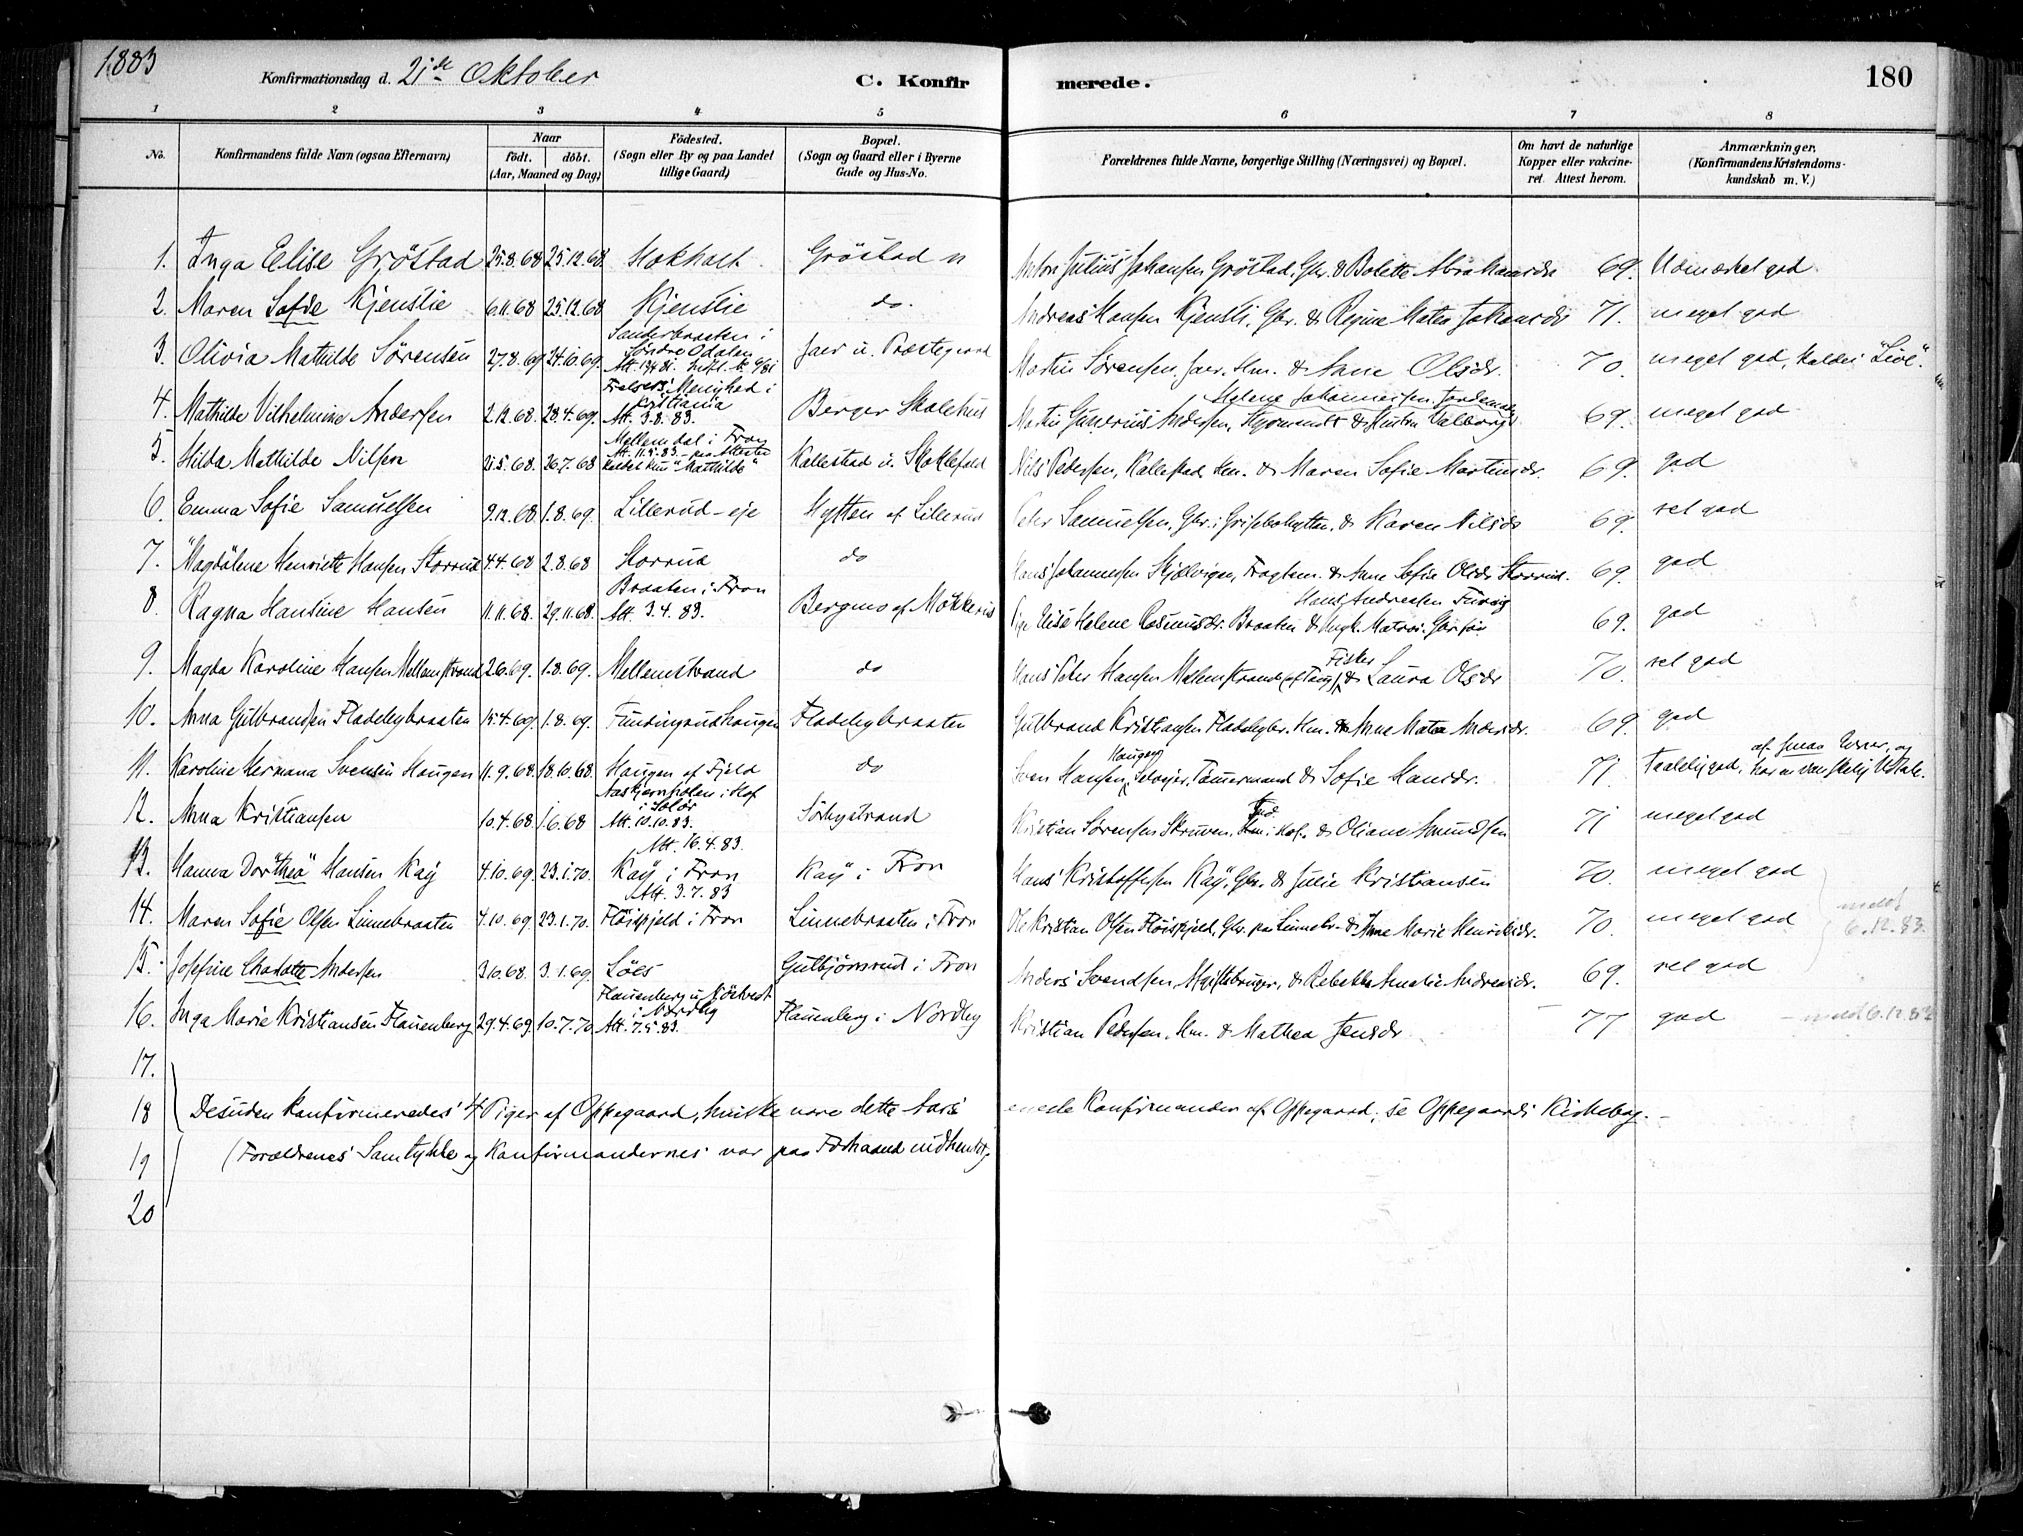 1883
Konfirmationsdag d. 21de Oktober
C. Konfirmerede.
180
1 2 3 4 5 6 7 8
No.
Konfirmandens fulde Navn (ogsaa Efternavn)
Naar
födt. döbt.
(Aar, Maaned og Dag)
Födested.
(Sogn eller By og paa Landet
tillige Gaard)
Bopæl.
(Sogn og Gaard eller i Byerne
Gade og Hus-No.
Forældrenes fulde Navne, borgerlige Stilling (Næringsvei) og Bopæl.
Om havt de naturlige
Kopper eller vakcine-
ret. Attest herom.
Anmærkninger.
(Konfirmandens Kristendoms-
kundskab m. V.)
1. Inga Elise Gröstad 25.8.68 25.12.68 Stokholt Gröstad Anton Julius Johansen Gröstad, Gbr. & Bolette Abrahamsdr 69. Udmærket god
2. Maren Sofie Kjenslie 6.11.68 25.12.68 Kjenslie do. Andreas Hansen Kjensli, Gbr. & Regine Matea Johansdr 71. meget god
3. Olivia Mathilde Sörensen 27.8.69 24.10.69 Sanderbraaten i
Söndre Odalen
Jaer u. Præstegaard Martin Sörensen, Jaer, Hm. & Anne Olsdr. 70. meget god, kaldes "Live".
4. Mathilde Vilhelmine Andersen 2.12.68. 28.4.69. Frelsers Menighed i
Kristiania
Att. 3.8.83. Berger Skolehus Martin Gunerius Andersen, Styrmand & Hustru Valborg
Helene Johannessen, Jordemoder 69. meget god
5. Hilda Mathilde Nilsen 21.5.68 26.7.68 Mellemdal i Fron
Att. 11.5.83. - paa Attesten
kaldet kun "Mathilde" Kallestad u. Skoklefald Nils Pedersen, Kallestad, Hm. & Maren Sofie Martinsdr. 69. god
6. Emma Sofie Samuelsen 9.12.68 1.8.69. Lillerud-eje Hytten af Lillerud Peter Samuelsen, Gbr. i Grisebuhytten, & Karen Nilsdr 69. ret god
7. Magdalene Henriette Hansen Storrud 4.4.68 2.8.68 Storrud do Hans Johannessen Skjælvigen, Fragtem. & Anne Sofie Olsdr Storrud. 69. god
8. Ragna Hansine Hansen 11.11.68. 29.11.68. Braaten i Fron
Att. 3.4.83. Bergmo af Mökkerus Pige Elise Helene Rasmusdr. Braaten & Ungk. Matros
Hans Andreasen 69. god
9. Magda Karoline Hansen Mellemstrand 2.6.69. 1.8.69. Mellemstrand do Hans Peter Hansen Mellemstrand & Laura Olsdr
Fisker 70. ret god
10. Anna Gulbrandsen Fladebybraaten 15.4.69. 1.8.69. Fundingsrudhaugen Fladebybraaten Gulbrand Kristiansen Fladebybr. Hm. & Anne Matea Andersdr. 69. god
11. Karoline Hermana Svensen Haugen 11.9.68 18.10.68. Haugen af Fjeld do Sven Hansen, Selvejer, Tömermand & Sofie Hansdr.
Haugen 71. Taalelig god, af smaa Evner, og
har en vanskelig Udtale.
12. Anna Kristiansen 10.4.68 1.6.68 i Hof
i Solör
Att. 10.10.83. Sörbystrand Kristian Sörensen Skruven, i Hof. & Oliane Amundsen 71 meget god
13. Hanna Dorthea Hansen Kaÿ 4.10.69. 23.1.70. Att. 16.4.83.
Kaÿ i Fron Kaÿ i Fron Hans Kristoffersen Kaÿ, Gbr. & Julie Kristiansen 70. meget god
14. Maren Sofie Olsen Linnebraaten 4.10.69 23.1.70. Att. 3.7.83
Flöispjeld i Fron Linnebraaten i Fron Ole Kristian Olsen Flöispjeld, Gbr. paa Linnebr. & Anne Marie Henriksdr. 70. meget god
meldt
6.12.83.
15. Josefine Charlotte Andersen 3.10.68. 3.1.69. Löes Gulbjörnsrud i Fron Anders Svendsen, & Rebekka Amalie Andreasdr. 69. ret god
16. Inga Marie Kristiansen Flauenberg 29.4.69. 10.7.70. Flauenberg u. Nökvest
i Nordby
Att. 7.5.83. Flauenberg i Nordby Kristian Pedersen, Hm. & Mathea Jensdr. 77 god - meldt 6.12.83
17.
18 Desuden konfirmeredes 4 Piger af Oppegaard, hvilke vare dette Aars eneste Konfirmander af Oppegaard; se Oppegaards Kirkebog. -
19 (Forældrenes Samtykke og Konfirmandernes var paa Forhaand indhentet)
20